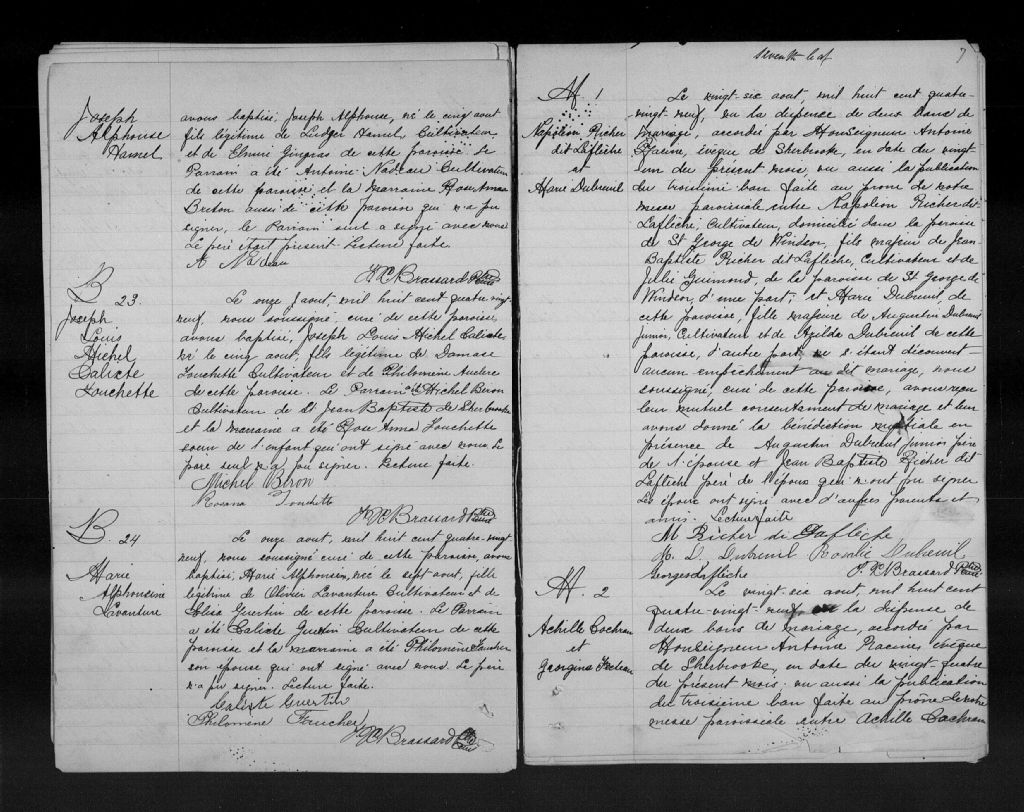 Joseph
Alphonse
Hamel
avons baptisé, Joseph Alphonse, né le cinq aout
fils légitime de Ludger Hamel, Cultivateur
et de Elmire Gingras de cette paroisse Le
Parrain a été Antoine Nadeau Cultivateur
de cette paroisse et la marraine Rose Anna
Breton aussi de cette paroisse qui n'a pu
signer, le Parrain seul a signé avec nous
Le père étant présent. Lecture faite
A Nadeau
F. X. Brassard Ptre Curé
B 23.
Joseph
Louis
Michel
Calixte
Touchette
Le onze aout, mil huit cent quatre vingt
neuf, nous soussigné, curé de cette paroisse,
avons baptisé, Joseph Louis Michel Calixte
né le cinq aout, fils légitime de Damase
Touchette Cultivateur et de Philomène Auclere
de cette paroisse. Le Parrain a été Michel Biron
Cultivateur de St Jean Baptiste de Sherbrooke
et la marraine a été Rose Anna Touchette
soeur de l'enfant qui ont signé avec nous Le
père seul n'a pu signer. Lecture faite.
Michel Biron
Rosana Touchette
F. X. Brassard Ptre Curé
B. 24
Marie
Alphonsine
Laventure
Le onze aout, mil huit cent quatre-vingt
neuf, nous soussigné curé de cette paroisse, avons
baptisé, Marie Alphonsine, née le sept aout, fille
légitime de Olivier Laventure Cultivateur et de
Eloise Guertin de cette paroisse. Le Parrain
a été Calixte Guertin Cultivateur de cette
paroisse et la marraine a été Philomène Faucher
son epouse qui ont signé avec nous. Le père
n'a pu signer. Lecture faite.
Calixte Guertin
Philomène Faucher
F. X. Brassard Ptre Curé
seventh leaf
7
M. 1
Napoléon Richer
dit Laflèche
et
Marie Dubreuil
Le vingt-six aout, mil huit cent quatre-
vingt neuf, vu la dispense de deux bans de
mariage, accordée par Monseigneur Antoine
Racine, évêque de Sherbrooke, en date du vingt
un du présent mois, vu aussi la publication
du troisième ban faite au prone de notre
messe paroissiale entre Napoléon Richer dit
Laflèche, Cultivateur, domicilié dans la paroisse
de St George de Windsor, fils majeur de Jean
Baptiste Richer dit Laflèche, Cultivateur et de
Julie Guimond, de la paroisse de St George de
Windsor, d'une part, et Marie Dubreuil, de
cette paroisse, fille majeure de Augustin Dubreuil
junior, Cultivateur et de Azilda Dubreuil de cette
paroisse, d'autre part, ne s'étant découvert
aucun empêchement au dit mariage, nous
soussigné, curé de cette paroisse, avons reçu
leur mutuel consentement de mariage et leur
avons donné la bénédiction nuptiale en
présence de Augustin Dubreuil junior père
de l'épouse et Jean Baptiste Richer dit
Laflèche père de l'époux qui n'ont pu signer
Les époux ont signé avec d'autres parents et
amis. Lecture faite
N. Richer dit Laflèche
M. D. Dubreuil Rosalie Dubreuil
Georges Laflèche F. X. Brassard Ptre Curé
M. 2
Achille Cochran
et
Georgina
Le vingt-six aout, mil huit cent
quatre-vingt-neuf, vu la dispense de
deux bans de mariage, accordée par
Monseigneur Antoine Racine, évêque
de Sherbrooke, en date du vingt-quatre
du présent mois. vu aussi la publication
du troisième ban faite au prône de notre
messe paroissiale entre Achille Cochran